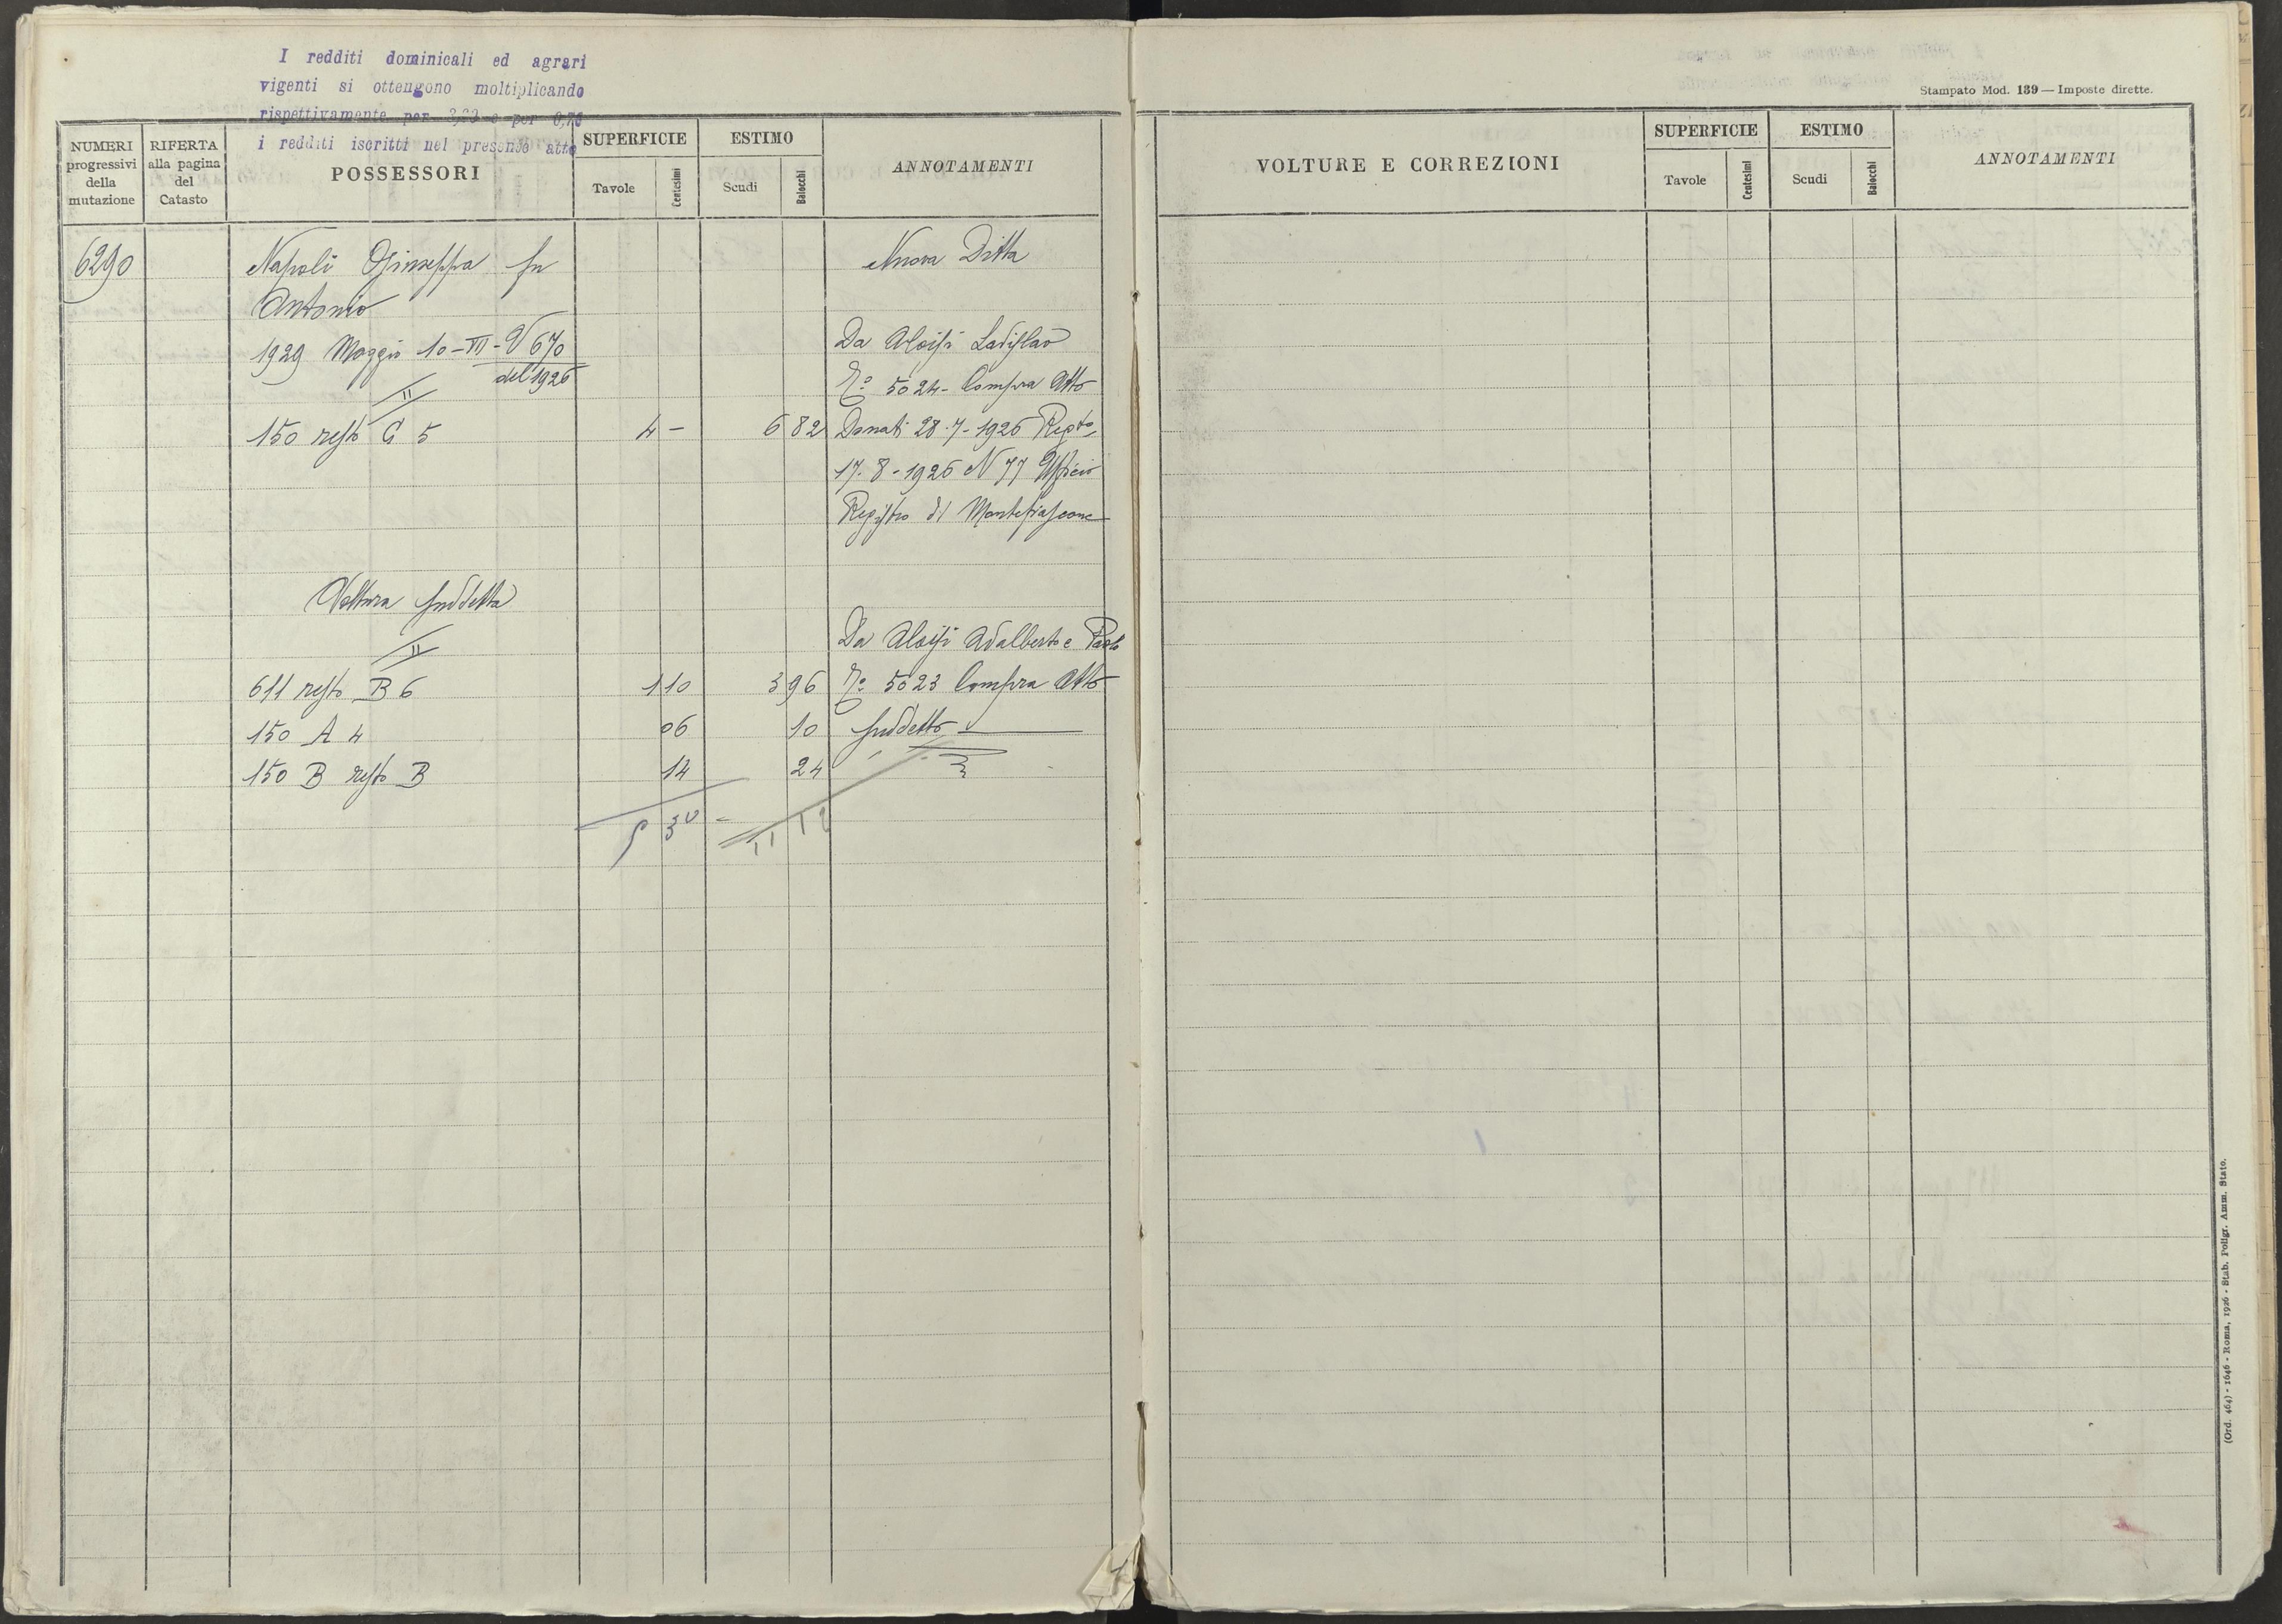 I redditi dominicali ed agrari
vigenti si ottengono moltiplicando
rispettivamente per 3,20 e per 0,70
i redditi iscritti nel presente atto
NUMERI progressivi della mutazione
RIFERTA alla pagina del Catasto
POSSESSORI
SUPERFICIE
Tavole
Centesimi
ESTIMO
Scudi
Baiocchi
ANNOTAMENTI
6290 Napoli Giuseppa fu Nuova Ditta
Antonio
1929 Maggio 10-VII- V 670 Da Aloisi Ladislao
del 1926
II N° 5024 - Compra Atto
150 resto C 5 4 - 6 82 Donati 28-7-1926 Regto
17-8-1926 N 77 Ufficio
Registro di Montefiascone
Voltura suddetta
II Da Aloisi Adalberto e Paolo
611 resto B 6 1 10 3 96 N° 5023 Compra Atto
150 A 4 06 10 suddetto
150 B resto B 14 24
5 30 - 11 12
Stampato Mod. 139 — Imposte dirette.
VOLTURE E CORREZIONI
SUPERFICIE
Tavole
Centesimi
ESTIMO
Scudi
Baiocchi
ANNOTAMENTI
(Ord. 464) - 1646 - Roma, 1926 - Stab. Poligr. Amm. Stato.